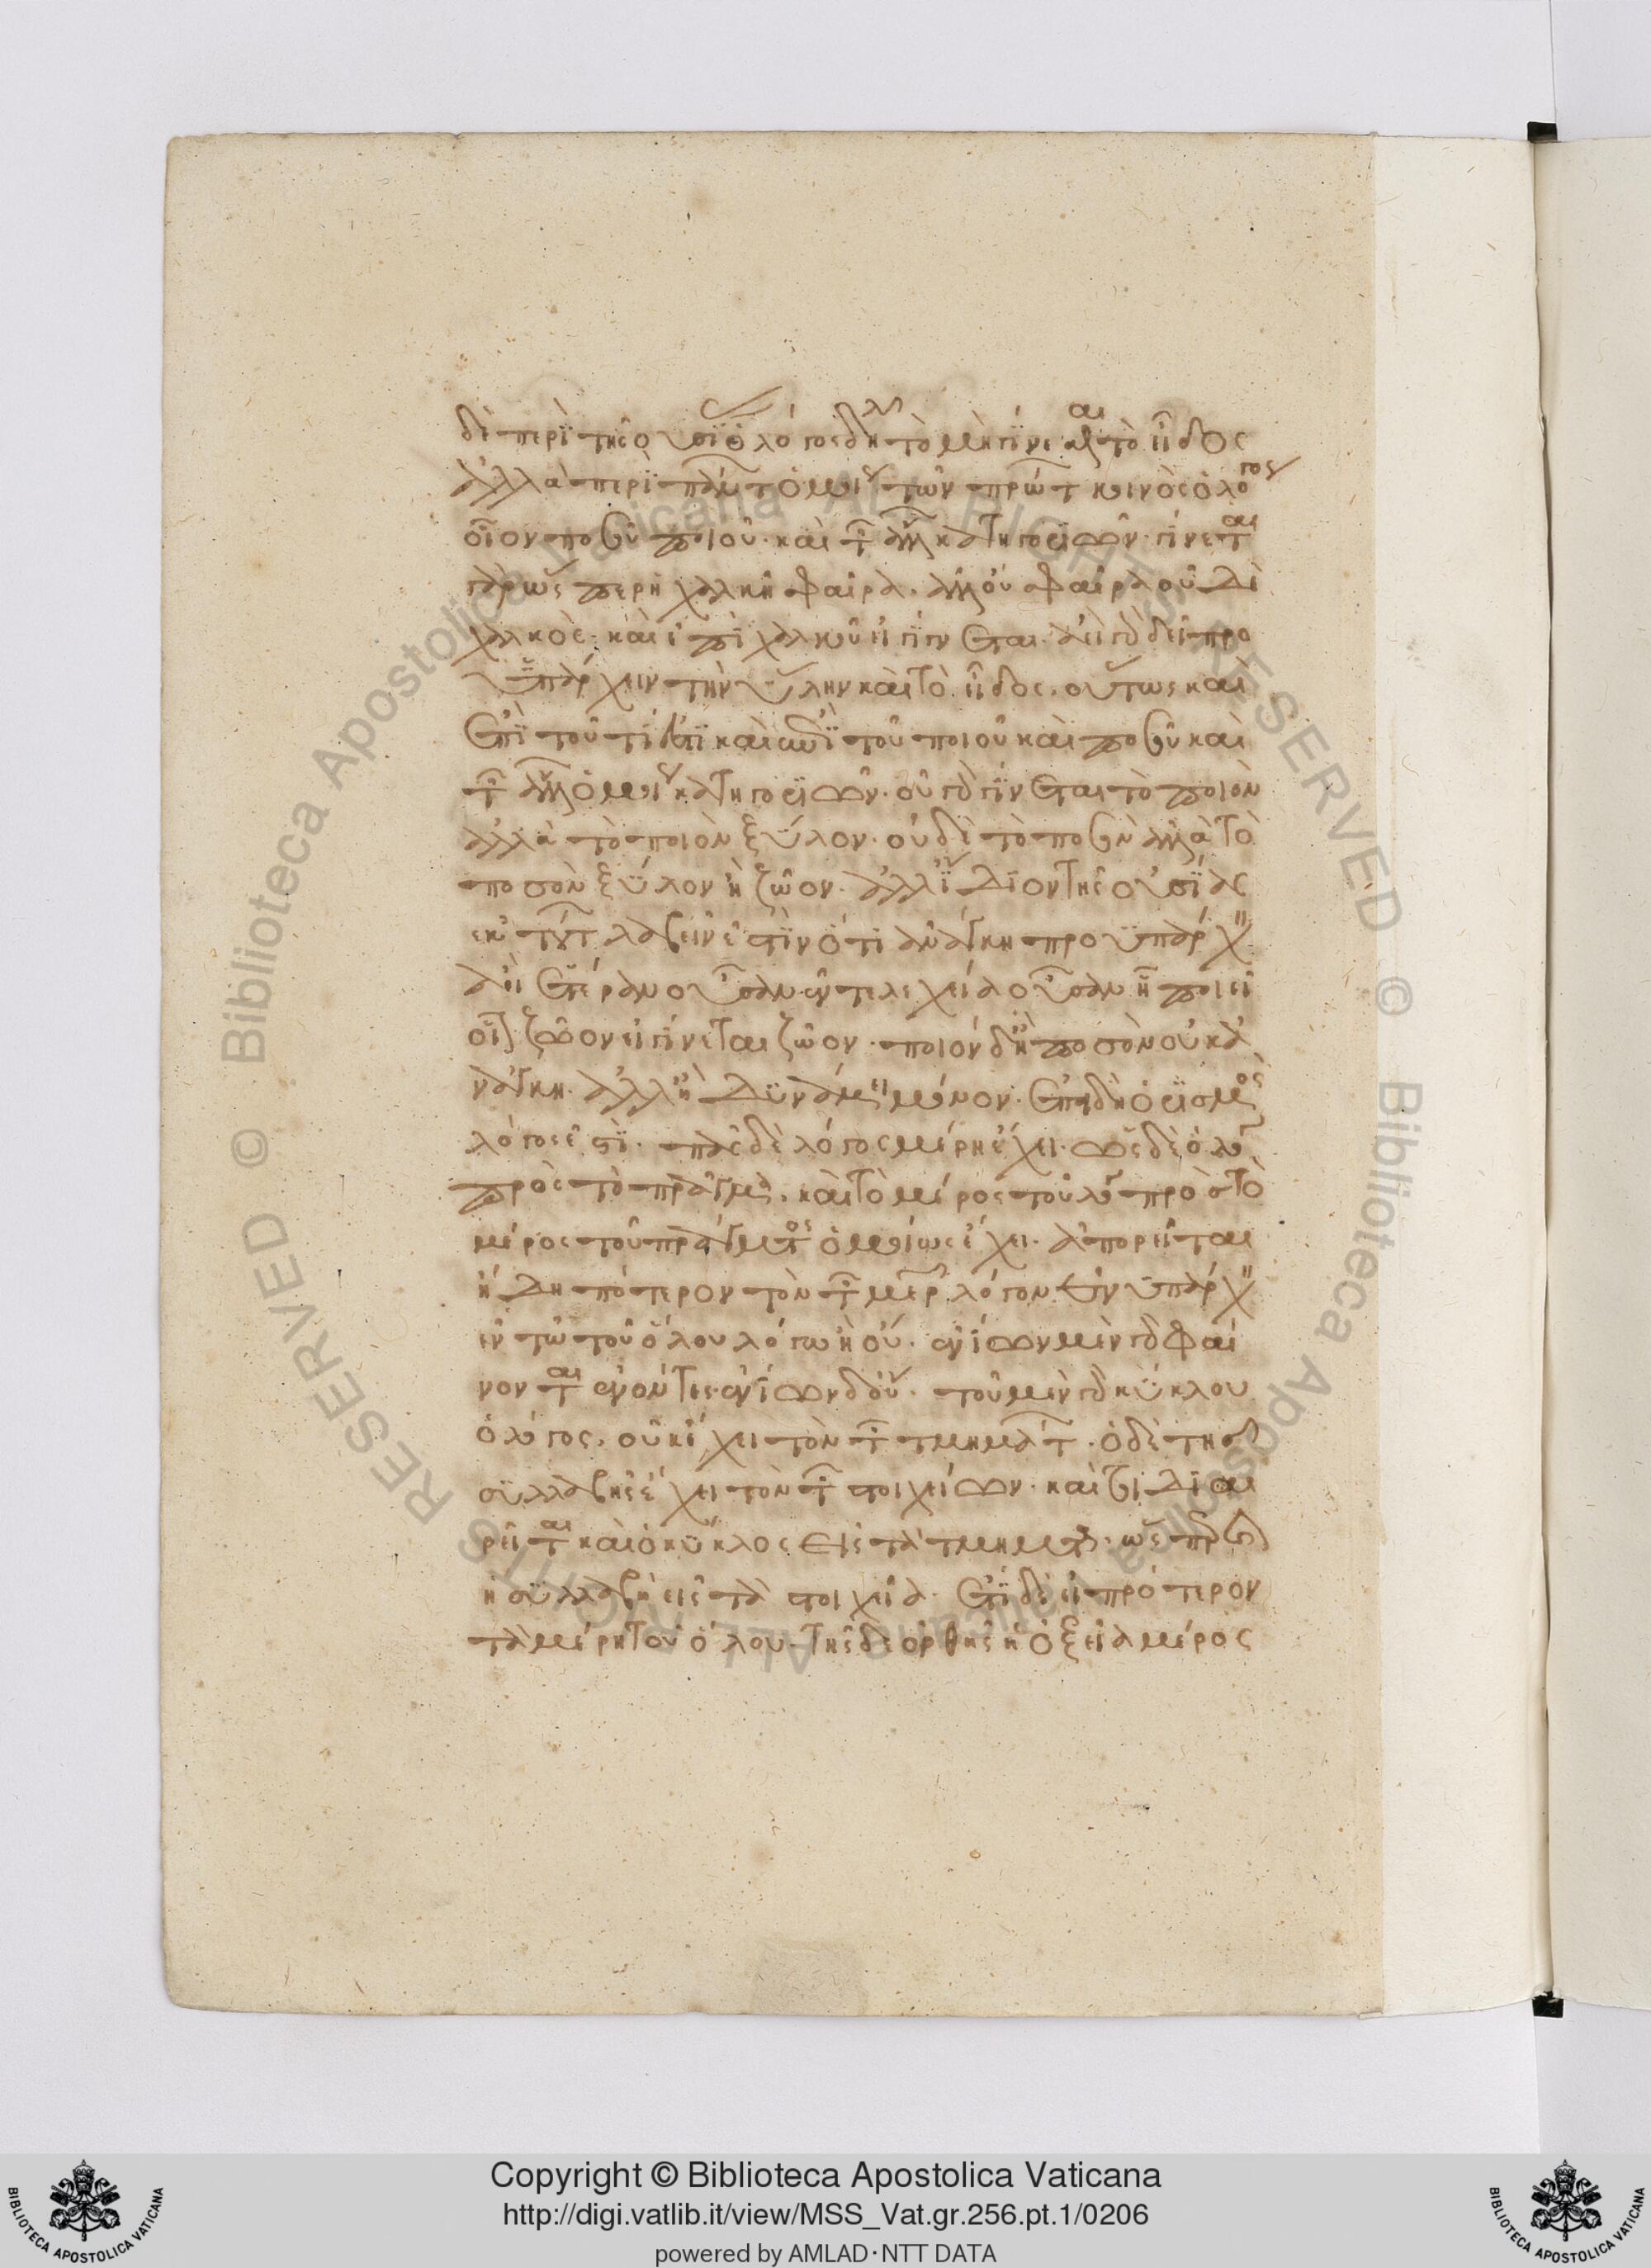 δὲ περὶ τῆς οὐσίας ὁ λόγος δηλοῖ τὸ μὴ γίνεσθαι τὸ εἶδος
ἀλλὰ περὶ πάντων ὁμοίως τῶν πρώτων κοινὸς ὁ λόγος
οἷον ποσοῦ ποιοῦ· καὶ τῶν ἄλλων κατηγοριῶν· γίνεται
γὰρ ὥσπερ ἡ χαλκῆ σφαῖρα. ἀλλ' οὐ σφαῖρα οὐδὲ
χαλκὸς· καὶ ἐπὶ χαλκοῦ εἰ γίνεται· ἀεὶ γὰρ δεῖ προ
ϋπάρχειν τὴν ὕλην καὶ τὸ εἶδος. οὕτως καὶ
ἐπὶ τοῦ τί ἐστι καὶ ἐπὶ τοῦ ποιοῦ καὶ ποσοῦ καὶ
τῶν ἄλλων ὁμοίως κατηγοριῶν· οὐ γὰρ γίνεται τὸ ποιὸν
ἀλλὰ τὸ ποιὸν ξύλον· οὐδὲ τὸ ποσὸν ἀλλὰ τὸ
ποσὸν ξύλον ἢ ζῶον· ἀλλ' ἴδιον τῆς οὐσίας
ἐκ τούτων λαβεῖν ἐστὶν ὅτι ἀνάγκη προϋπάρχειν
ἀεὶ ἑτέραν οὐσίαν ἐντελεχεία οὖσαν ἣ ποιεῖ
οἷον ζῶον εἰ γίνεται ζῶον· ποιὸν δ' ἢ ποσὸν οὐκ ἀ
νάγκη· ἀλλ' ἢ δυνάμει μόνον· ἐπεὶ δὴ ὁ ὁρισμὸς
λόγος ἐστὶ· πᾶς δὲ λόγος μέρη ἔχει· ὡς δὲ ὁ λόγος
πρὸς τὸ πρᾶγμα. καὶ τὸ μέρος τοῦ λόγου πρὸς τὸ
μέρος τοῦ πράγματος ὁμοίως ἔχει· ἀπορεῖται
ἤδη πότερον τὸν τῶν μερῶν λόγον ἐνυπάρχειν
ἐν τῶ τοῦ ὅλου λόγω ἢ οὔ· ἐνίων μὲν γὰρ φαί
νονται ἐνόντες· ἐνίων δ' οὔ· τοῦ μὲν γὰρ κύκλου
ὁ λόγος. οὐκ ἔχει τὸν τῶν τμημάτων· ὁ δὲ τῆς
συλλαβῆς ἔχει τὸν τῶν στοιχείων· καίτοι διαι
ρεῖται καὶ ὁ κύκλος εἰς τὰ τμήματα· ὥσπερ
ἡ συλλαβὴ εἰς τὰ στοιχεῖα· ἔτι δὲ εἰ πρότερον
τὰ μέρη τοῦ ὅλου. τῆς δὲ ὀρθῆς ἡ ὀξεῖα μέρος
Copyright © Biblioteca Apostolica Vaticana
http://digi.vatlib.it/view/MSS_Vat.gr.256.pt.1/0206
powered by AMLAD·NTT DATA